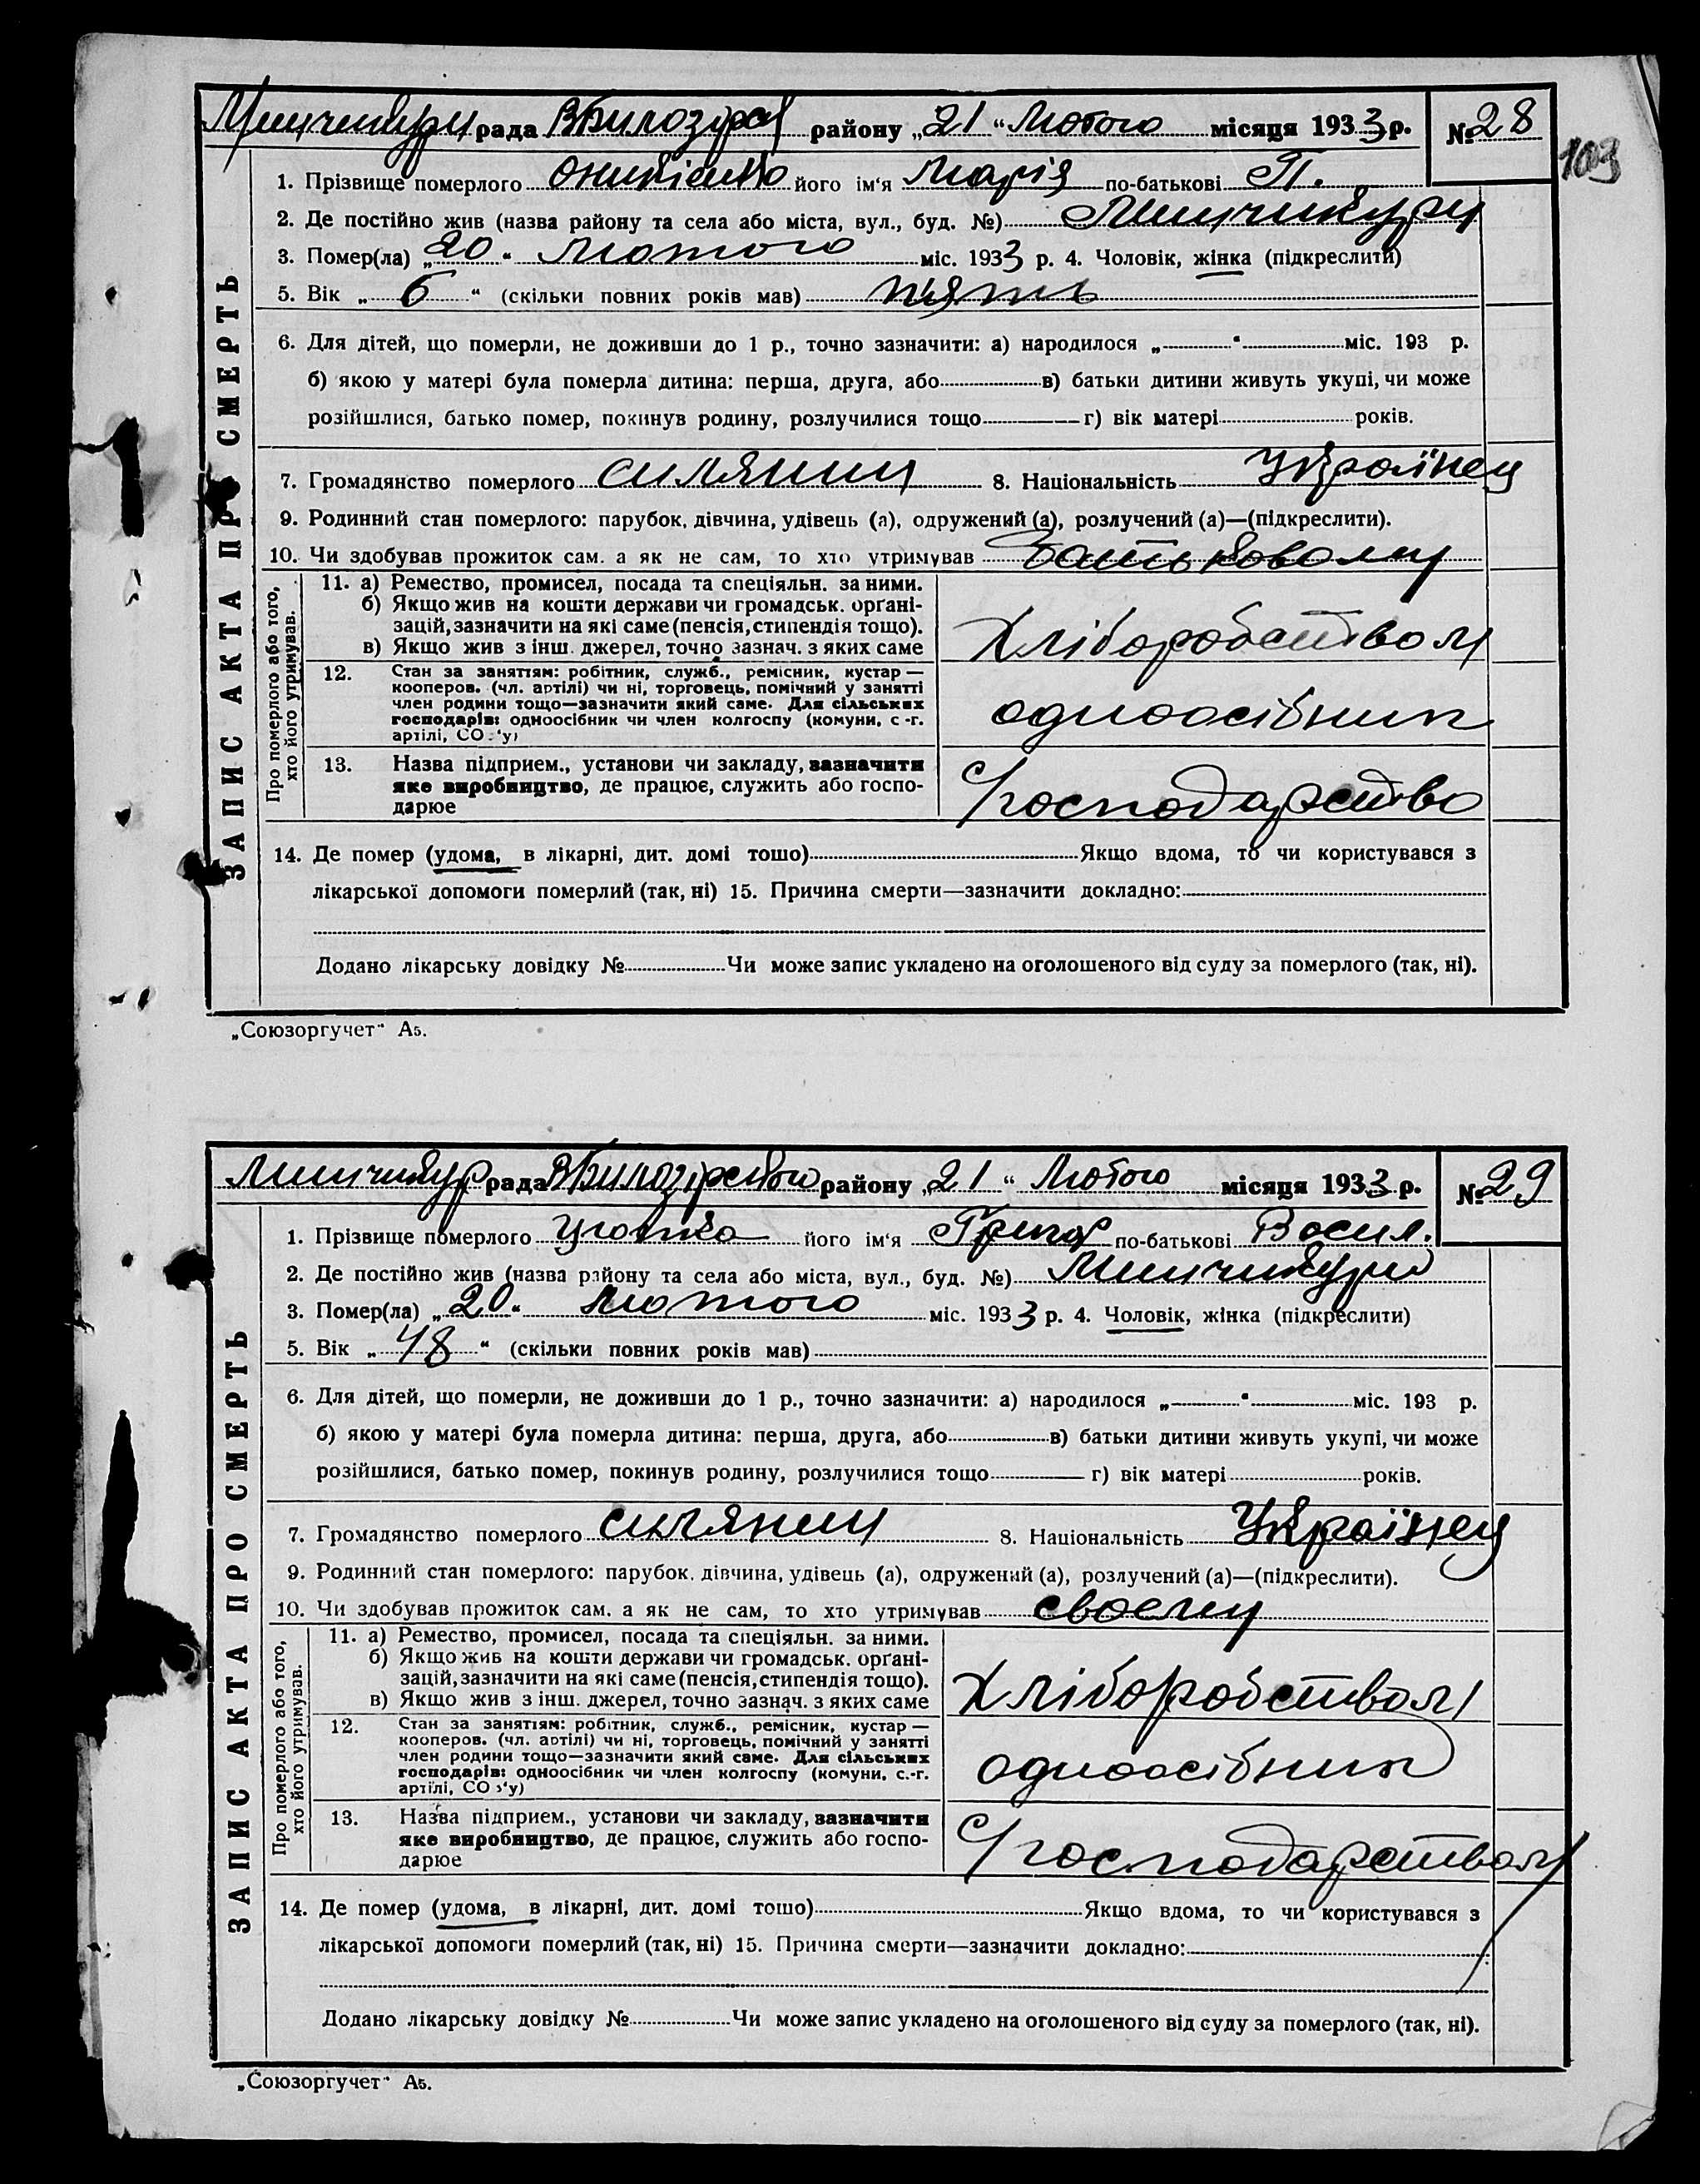 рада В Билозірсk району „21“ Лютого місяця 1933 р. № 28
103
ЗАПИС АКТА ПРО СМЕРТЬ
1. Прізвище померлого його ім‘я Марія по-батькові П.
2. Де постійно жив (назва району та села або міста, вул., буд. №)
3. Помер(ла) „20“ Лютого міс. 1933 р. 4. Чоловік, жінка (підкреслити)
5. Вік „5“ (скільки повних років мав) пять
6. Для дітей, що померли, не доживши до 1 р., точно зазначити: а) народилося „ “ міс. 193 р.
б) якою у матері була померла дитина: перша, друга, або в) батьки дитини живуть укупі, чи може
розійшлися, батько помер, покинув родину, розлучилися тощо г) вік матері років.
7. Громадянство померлого силянин 8. Національність Українец
9. Родинний стан померлого: парубок, дівчина, удівець (а), одружений (а), розлучений (а)—(підкреслити).
10. Чи здобував прожиток сам. а як не сам, то хто утримував батьковому
Про померлого або того,
хто його утримував.
11. а) Ремество, промисел, посада та спеціяльн. за ними.
б) Якщо жив на кошти держави чи громадськ. орґані-
зацій, зазначити на які саме (пенсія, стипендія тощо).
в) Якщо жив з інш. джерел, точно зазнач. з яких саме
Хліборобством
12. Стан за заняттям: робітник, служб., ремісник, кустар —
кооперов. (чл. артілі) чи ні, торговець, помічний у занятті
член родини тощо—зазначити який саме. Для сільських
господарів: одноосібник чи член колгоспу (комуни, с.-г.
артілі, СО у)
одноосібник
13. Назва підприєм., установи чи закладу, зазначити
яке виробництво, де працює, служить або госпо-
дарює
Господарство
14. Де помер (удома, в лікарні, дит. домі тощо) Якщо вдома, то чи користувався з
лікарської допомоги померлий (так, ні) 15. Причина смерти—зазначити докладно:
Додано лікарську довідку № Чи може запис укладено на оголошеного від суду за померлого (так, ні).
„Союзоргучет“ А5.
рада ВБилозірського району „21“ Лютого місяця 1933 р. № 29
ЗАПИС АКТА ПРО СМЕРТЬ
1. Прізвище померлого його ім‘я Григор по-батькові Васил.
2. Де постійно жив (назва району та села або міста, вул., буд. №)
3. Помер(ла) „20“ Лютого міс. 1933 р. 4. Чоловік, жінка (підкреслити)
5. Вік „48“ (скільки повних років мав)
6. Для дітей, що померли, не доживши до 1 р., точно зазначити: а) народилося „ “ міс. 193 р.
б) якою у матері була померла дитина: перша, друга, або в) батьки дитини живуть укупі, чи може
розійшлися, батько помер, покинув родину, розлучилися тощо г) вік матері років.
7. Громадянство померлого силянин 8. Національність Українец
9. Родинний стан померлого: парубок, дівчина, удівець (а), одружений (а), розлучений (а)—(підкреслити).
10. Чи здобував прожиток сам. а як не сам, то хто утримував своєму
Про померлого або того,
хто його утримував.
11. а) Ремество, промисел, посада та спеціяльн. за ними.
б) Якщо жив на кошти держави чи громадськ. орґані-
зацій, зазначити на які саме (пенсія, стипендія тощо).
в) Якщо жив з інш. джерел, точно зазнач. з яких саме
Хліборобством
12. Стан за заняттям: робітник, служб., ремісник, кустар —
кооперов. (чл. артілі) чи ні, торговець, помічний у занятті
член родини тощо—зазначити який саме. Для сільських
господарів: одноосібник чи член колгоспу (комуни, с.-г.
артілі, СО у)
одноосібник
13. Назва підприєм., установи чи закладу, зазначити
яке виробництво, де працює, служить або госпо-
дарює
Господарством
14. Де помер (удома, в лікарні, дит. домі тощо) Якщо вдома, то чи користувався з
лікарської допомоги померлий (так, ні) 15. Причина смерти—зазначити докладно:
Додано лікарську довідку № Чи може запис укладено на оголошеного від суду за померлого (так, ні).
„Союзоргучет“ А5.